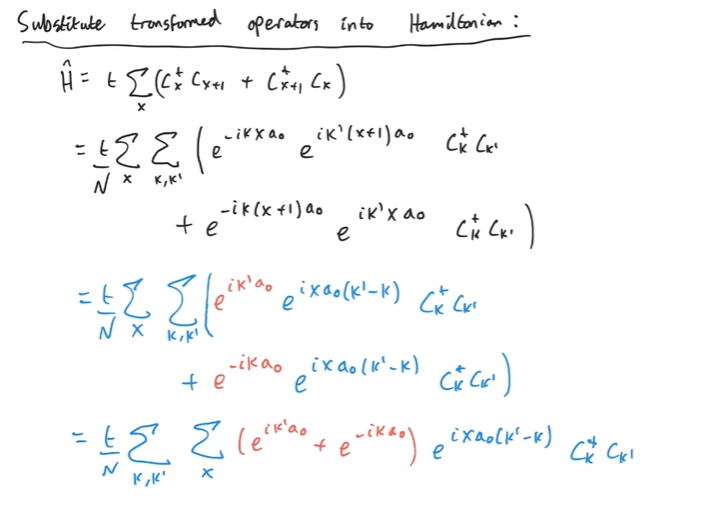 Substitute transformed operators into Hamiltonian :
Ĥ = t ∑_x (C_x^† C_{x+1} + C_{x+1}^† C_x)
= t/N ∑_x ∑_{k,k'} ( e^{-ikxa₀} e^{ik'(x+1)a₀} C_k^† C_{k'}
+ e^{-ik(x+1)a₀} e^{ik'xa₀} C_k^† C_{k'} )
= t/N ∑_x ∑_{k,k'} ( e^{ik'a₀} e^{ixa₀(k'-k)} C_k^† C_{k'}
+ e^{-ika₀} e^{ixa₀(k'-k)} C_k^† C_{k'} )
= t/N ∑_{k,k'} ∑_x ( e^{ik'a₀} + e^{-ika₀} ) e^{ixa₀(k'-k)} C_k^† C_{k'}